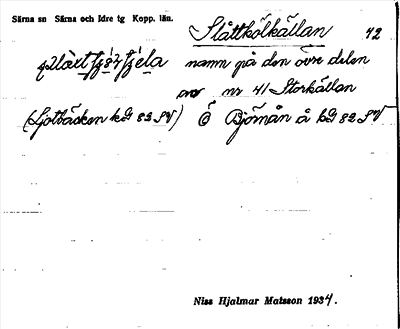 Särna sn Särna och Idre tg Kopp. län.
Slåttkölkällan 42
namn på den övre delen
av nr 41 Storkällan
(Sjötbäcken kG 82 SV) Ö Björnån å bG 82 SV
Nils Hjalmar Matsson 1934.